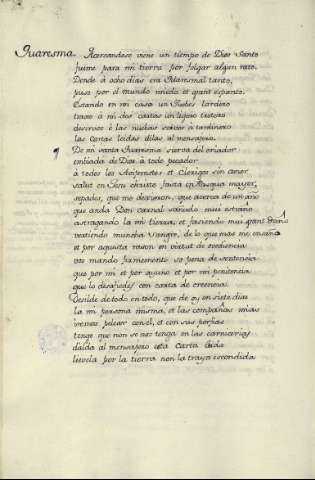 Quaresma. Acercandose viene un tiempo de Dios Santo
fuime para mi tierra por folgar algun rato.
Dende à ocho dias era Maresmal tanto,
puso por el mundo miedo et grant espanto.
Estando en mi casa un Jueves lardero
truxo à mi dos cartas un ligero trotero
desirvos è las nuebas sevos à tardinero
las cartas leidas dilas al mensagero.
De mi santa Quaresma sierva del criador
enbiada de Dios à todo pecador
à todos los Arciprestes et Clerigos sin amor
salut en Jesu christo fasta en Pasqua mayor,
sepades, que me dixieron, que acerca de un año
que anda Don carnal sañudo muy estraño
astragando la mi tierra, et fasiendo muy grant daño
vertiendo muncha sangre, de lo que mas me ensaña
et por aquesta rason en virtut de ovediencia
vos mando firmemente so pena de sentencia
que por mi et por ayuno et por mi penitencia
que lo desafiedes con carta de creencia.
Desilde de todo en todo, que de oy en siete dias
la mi persona misma, et las compañas mias
iremos pelear con el, et con sus porfias
tengo que non se nos tenga en las carnicerias
dalda al mensajero esta carta leida
lievela por la tierra non la traya escondida